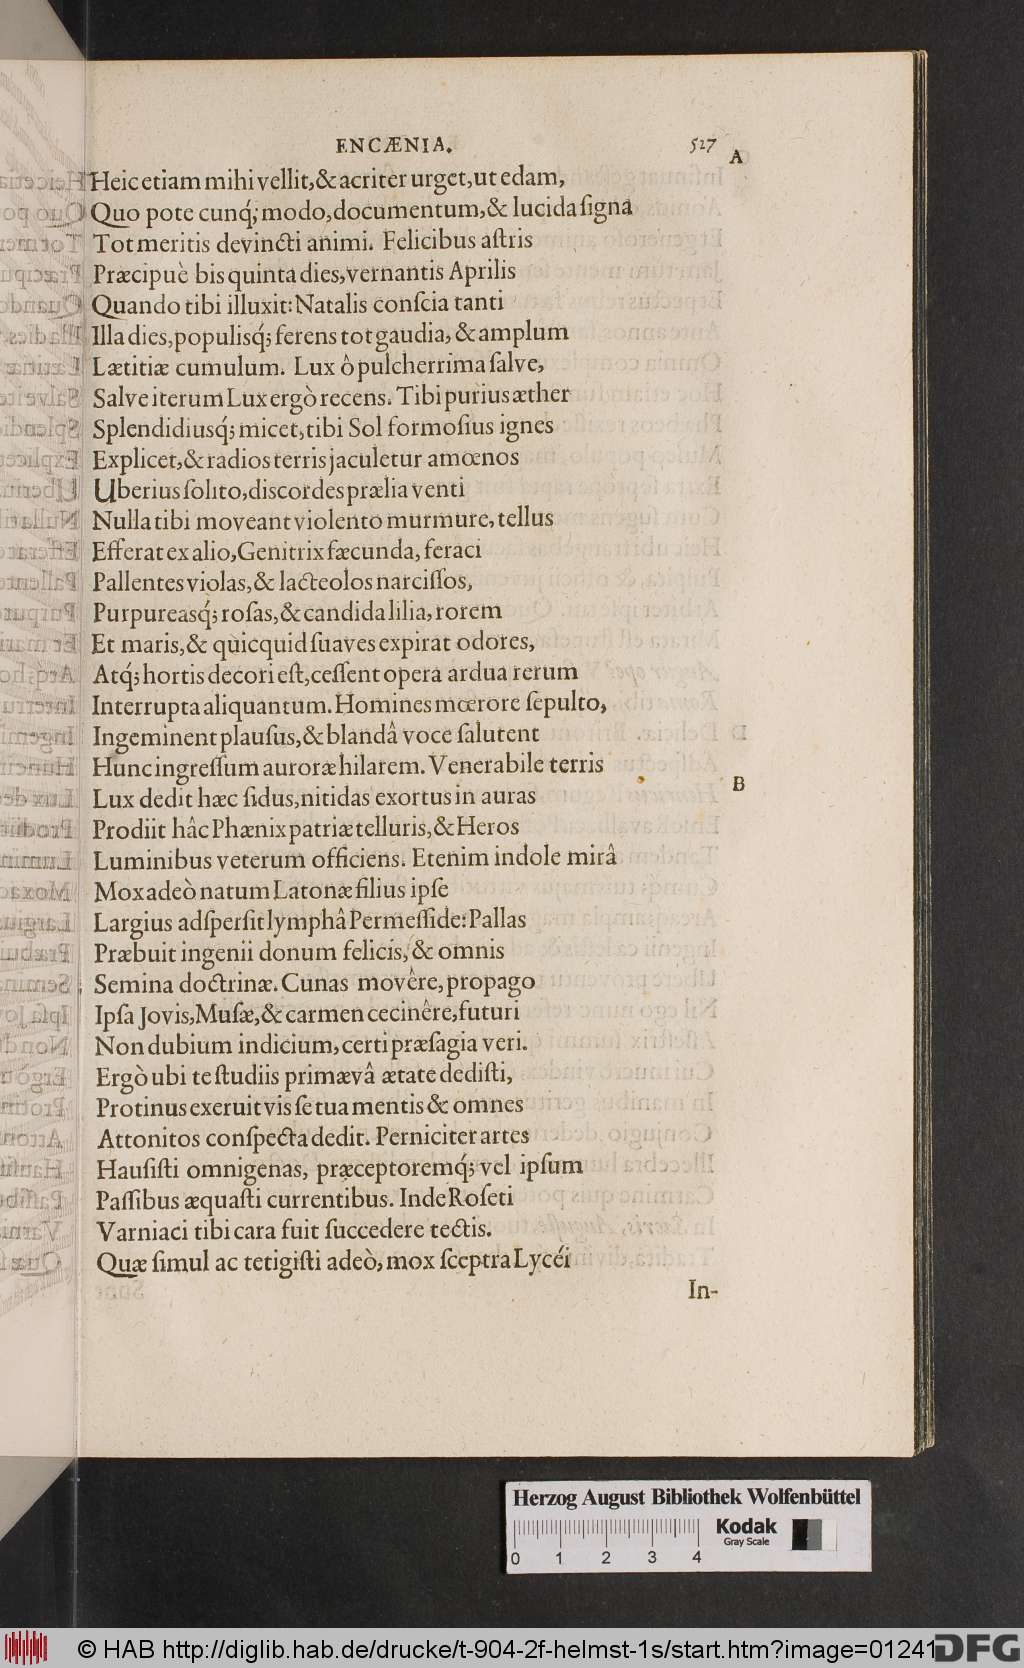 ENCÆNIA. 527
A
Heic etiam mihi vellit, & acriter urget, ut edam,
Quo pote cunq́; modo, documentum, & lucida ſigna
Tot meritis devincti animi. Felicibus aſtris
Præcipuè bis quinta dies, vernantis Aprilis
Quando tibi illuxit: Natalis conſcia tanti
Illa dies, populisq́; ferens tot gaudia, & amplum
Lætitiæ cumulum. Lux ò pulcherrima ſalve,
Salve iterum Lux ergò recens. Tibi puriùs æther
Splendidiusq́; micet, tibi Sol formoſius ignes
Explicet, & radios terris jaculetur amœnos
Uberius ſolito, discordes prælia venti
Nulla tibi moveant violento murmure, tellus
Efferat ex alio, Genitrix fæcunda, feraci
Pallentes violas, & lacteolos narciſſos,
Purpureasq́; roſas, & candida lilia, rorem
Et maris, & quicquid ſuaves expirat odores,
Atq́; hortis decori eſt, ceſſent opera ardua rerum
Interrupta aliquantum. Homines mœrore ſepulto,
Ingeminent plauſus, & blandâ voce ſalutent
Hunc ingreſſum auroræ hilarem. Venerabile terris
B
Lux dedit hæc ſidus, nitidas exortus in auras
Prodiit hâc Phænix patriæ telluris, & Heros
Luminibus veterum officiens. Etenim indole mirâ
Mox adeò natum Latonæ filius ipſe
Largius adſperſit lymphâ Permeſſide: Pallas
Præbuit ingenii donum felicis, & omnis
Semina doctrinæ. Cunas movêre, propago
Ipſa Jovis, Muſæ, & carmen cecinêre, futuri
Non dubium indicium, certi præſagia veri.
Ergò ubi te ſtudiis primævâ ætate dediſti,
Protinus exeruit vis ſe tua mentis & omnes
Attonitos conſpecta dedit. Perniciter artes
Hauſiſti omnigenas, præceptoremq́; vel ipſum
Paſſibus æquaſti currentibus. Inde Roſeti
Varniaci tibi cara fuit ſuccedere tectis.
Quæ ſimul ac tetigiſti adeò, mox ſceptra Lycéi
In-
Herzog August Bibliothek Wolfenbüttel
Kodak
Gray Scale
0 1 2 3 4
© HAB http://diglib.hab.de/drucke/t-904-2f-helmst-1s/start.htm?image=01241
DFG